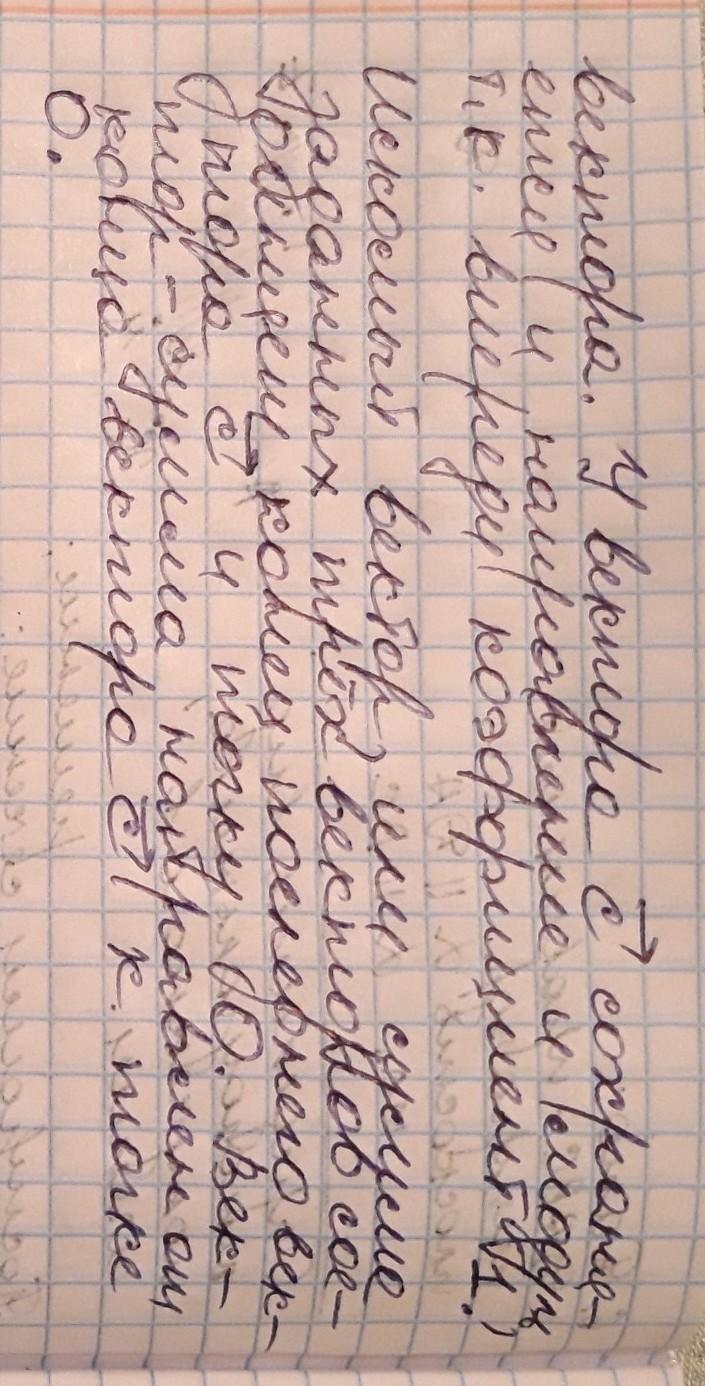 вектора. У вектора c⃗ сохраня-
ется и направление и модуль
т.к. впереди коэффициент 1.
Искомый вектор или сумма
заданных трёх векторов сое-
диняем конец последнего век-
тора c⃗ и точку O. Век-
тор - сумма направлен от
конца вектора c⃗ к точке
O.